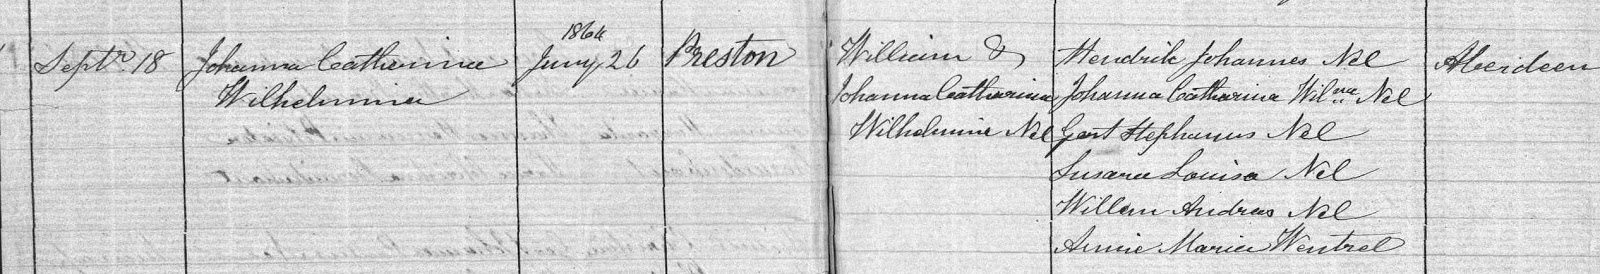 1864
Septr. 18 Johanna Catharina Juny 26 Preston William & Hendrik Johannes Nel Aberdeen
Wilhelmina Johanna Catharina Johanna Catharina Wilna Nel
Wilhelmina Nel Gert Stephanus Nel
Susara Louisa Nel
Willem Andreas Nel
Annie Maria Wentzel